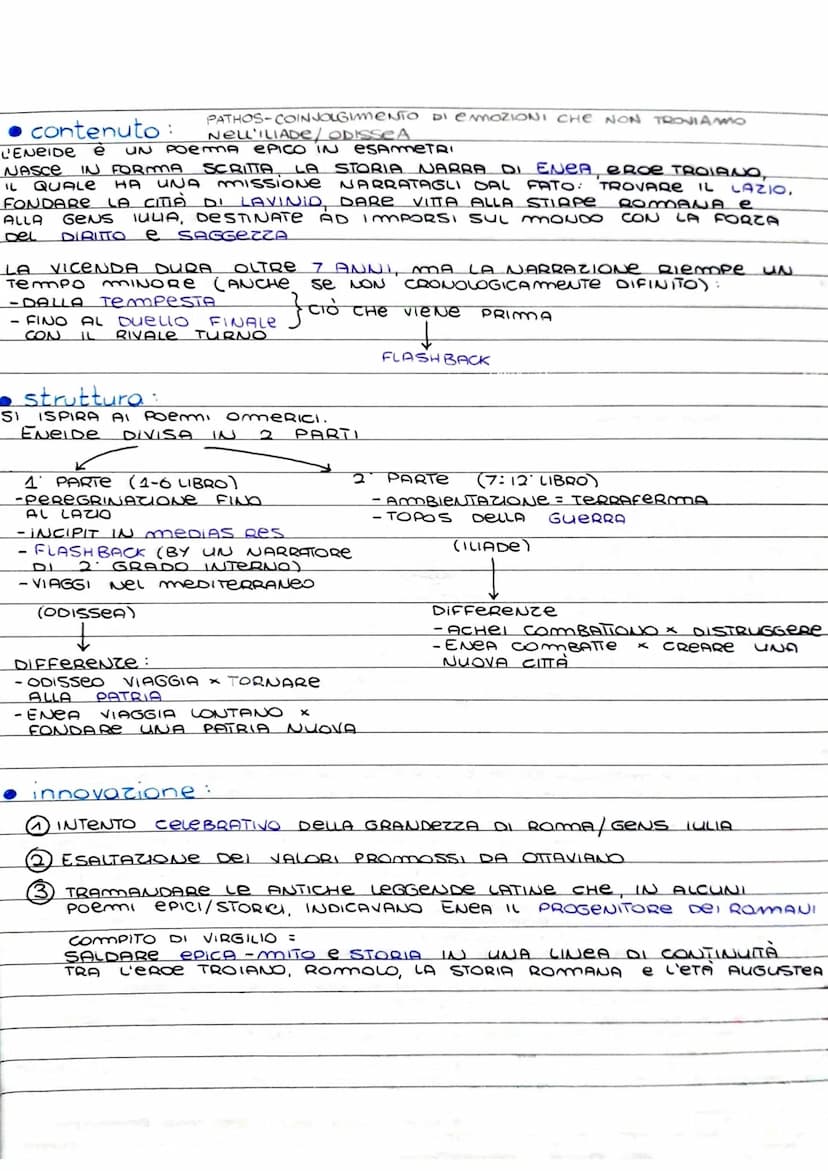 • contenuto: PATHOS-COINVOLGIMENTO DI EMOZIONI CHE NON TROVIAMO
NELL'ILIADE/ODISSEA
L'ENEIDE È UN POEMA EPICO IN ESAMETRI
NASCE IN FORMA SCRITTA. LA STORIA NARRA DI ENEA, EROE TROIANO,
IL QUALE HA UNA MISSIONE NARRATAGLI DAL FATO: TROVARE IL LAZIO,
FONDARE LA CITTÀ DI LAVINIO, DARE VITTA ALLA STIRPE ROMANA E
ALLA GENS IULIA, DESTINATE AD IMPORSI SUL MONDO CON LA FORZA
DEL DIRITTO E SAGGEZZA
LA VICENDA DURA OLTRE 7 ANNI, MA LA NARRAZIONE RIEMPE UN
TEMPO MINORE (ANCHE SE NON CRONOLOGICAMENTE DIFINITO):
- DALLA TEMPESTA
- FINO AL DUELLO FINALE
CON IL RIVALE TURNO
CIÒ CHE VIENE PRIMA
FLASHBACK
• struttura:
SI ISPIRA AI POEMI OMMERICI.
ENEIDE DIVISA IN 2 PARTI
1° PARTE (1-6 LIBRO)
- PEREGRINAZIONE FINO
AL LAZIO
- INCIPIT IN MEDIAS RES
- FLASHBACK (BY UN NARRATORE
DI 2° GRADO INTERNO)
- VIAGGI NEL MEDITERRANEO
(ODISSEA)
DIFFERENZE:
- ODISSEO VIAGGIA × TORNARE
ALLA PATRIA
- ENEA VIAGGIA LONTANO ×
FONDARE UNA PATRIA NUOVA
2° PARTE (7:12° LIBRO)
- AMBIENTAZIONE = TERRAFERMA
- TOPOS DELLA GUERRA
(ILIADE)
DIFFERENZE
- ACHEI COMBATTONO × DISTRUGGERE
- ENEA COMBATTE × CREARE UNA
NUOVA CITTÀ
• innovazione:
① INTENTO CELEBRATIVO DELLA GRANDEZZA DI ROMA/GENS IULIA
② ESALTAZIONE DEI VALORI PROMOSSI DA OTTAVIANO
③ TRAMANDARE LE ANTICHE LEGGENDE LATINE CHE, IN ALCUNI
POEMI EPICI/STORICI, INDICAVANO ENEA IL PROGENITORE DEI ROMANI
COMPITO DI VIRGILIO =
SALDARE EPICA-MITO E STORIA IN UNA LINEA DI CONTINUITÀ
TRA L'EROE TROIANO, ROMOLO, LA STORIA ROMANA E L'ETÀ AUGUSTEA